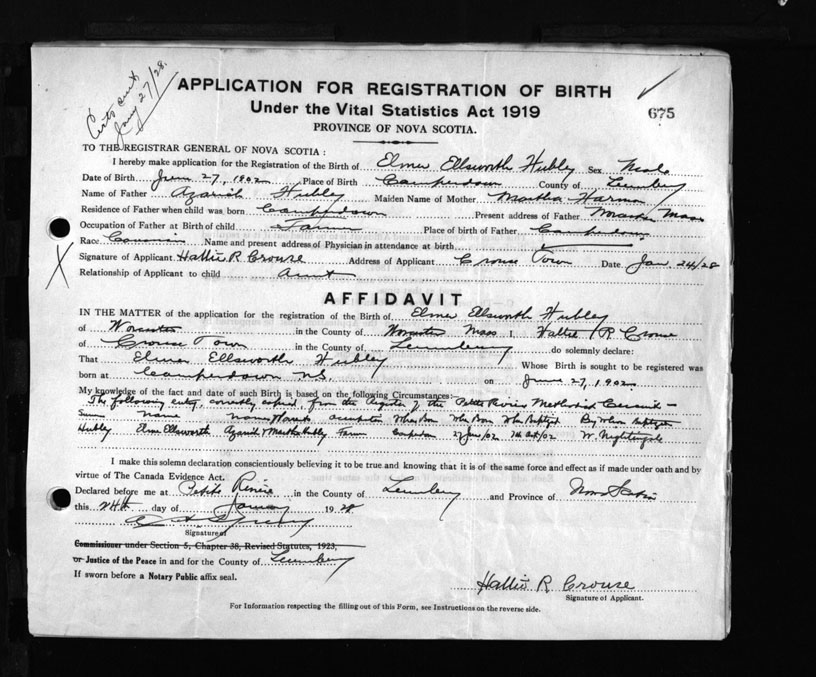 Certs sent
Jany 27/28.
APPLICATION FOR REGISTRATION OF BIRTH
Under the Vital Statistics Act 1919
675
PROVINCE OF NOVA SCOTIA.
TO THE REGISTRAR GENERAL OF NOVA SCOTIA :
I hereby make application for the Registration of the Birth of Elmer Ellsworth Hubley Sex Male
Date of Birth June 27, 1902 Place of Birth Camperdown County of Lunenburg
Name of Father Azariah Hubley Maiden Name of Mother Martha Harmon
Residence of Father when child was born Camperdown Present address of Father Mass
Occupation of Father at Birth of child Farmer Place of birth of Father Camperdown
Race Name and present address of Physician in attendance at birth
Signature of Applicant Hallie R Crouse Address of Applicant Crouse Town Date Jan 24/28
Relationship of Applicant to child aunt
X
AFFIDAVIT
IN THE MATTER of the application for the registration of the Birth of Elmer Ellsworth Hubley
of Worcester in the County of Worcester Mass I, Hallie R Crouse
of Crouse Town in the County of Lunenburg do solemnly declare:
That Elmer Ellsworth Hubley Whose Birth is sought to be registered was
born at Camperdown N.S. on June 27, 1902
My knowledge of the fact and date of such Birth is based on the following Circumstances:
The following entry, correctly copied, from the Register of the Petite Riviere Methodist Circuit -
Name When Born Where Born When Baptized By Whom Baptized
Hubley Elmer Ellsworth Azariah & Martha Hubley Farmer Camperdown 27 June/02 Oct/02 W. Nightingale
I make this solemn declaration conscientiously believing it to be true and knowing that it is of the same force and effect as if made under oath and by
virtue of The Canada Evidence Act.
Declared before me at Petite Riviere in the County of Lunenburg and Province of Nova Scotia
this 24th day of January 1928
Signature of
Commissioner under Section 5, Chapter 38, Revised Statutes, 1923,
or Justice of the Peace in and for the County of Lunenburg
If sworn before a Notary Public affix seal.
Hallie R. Crouse
Signature of Applicant.
For Information respecting the filling out of this Form, see Instructions on the reverse side.